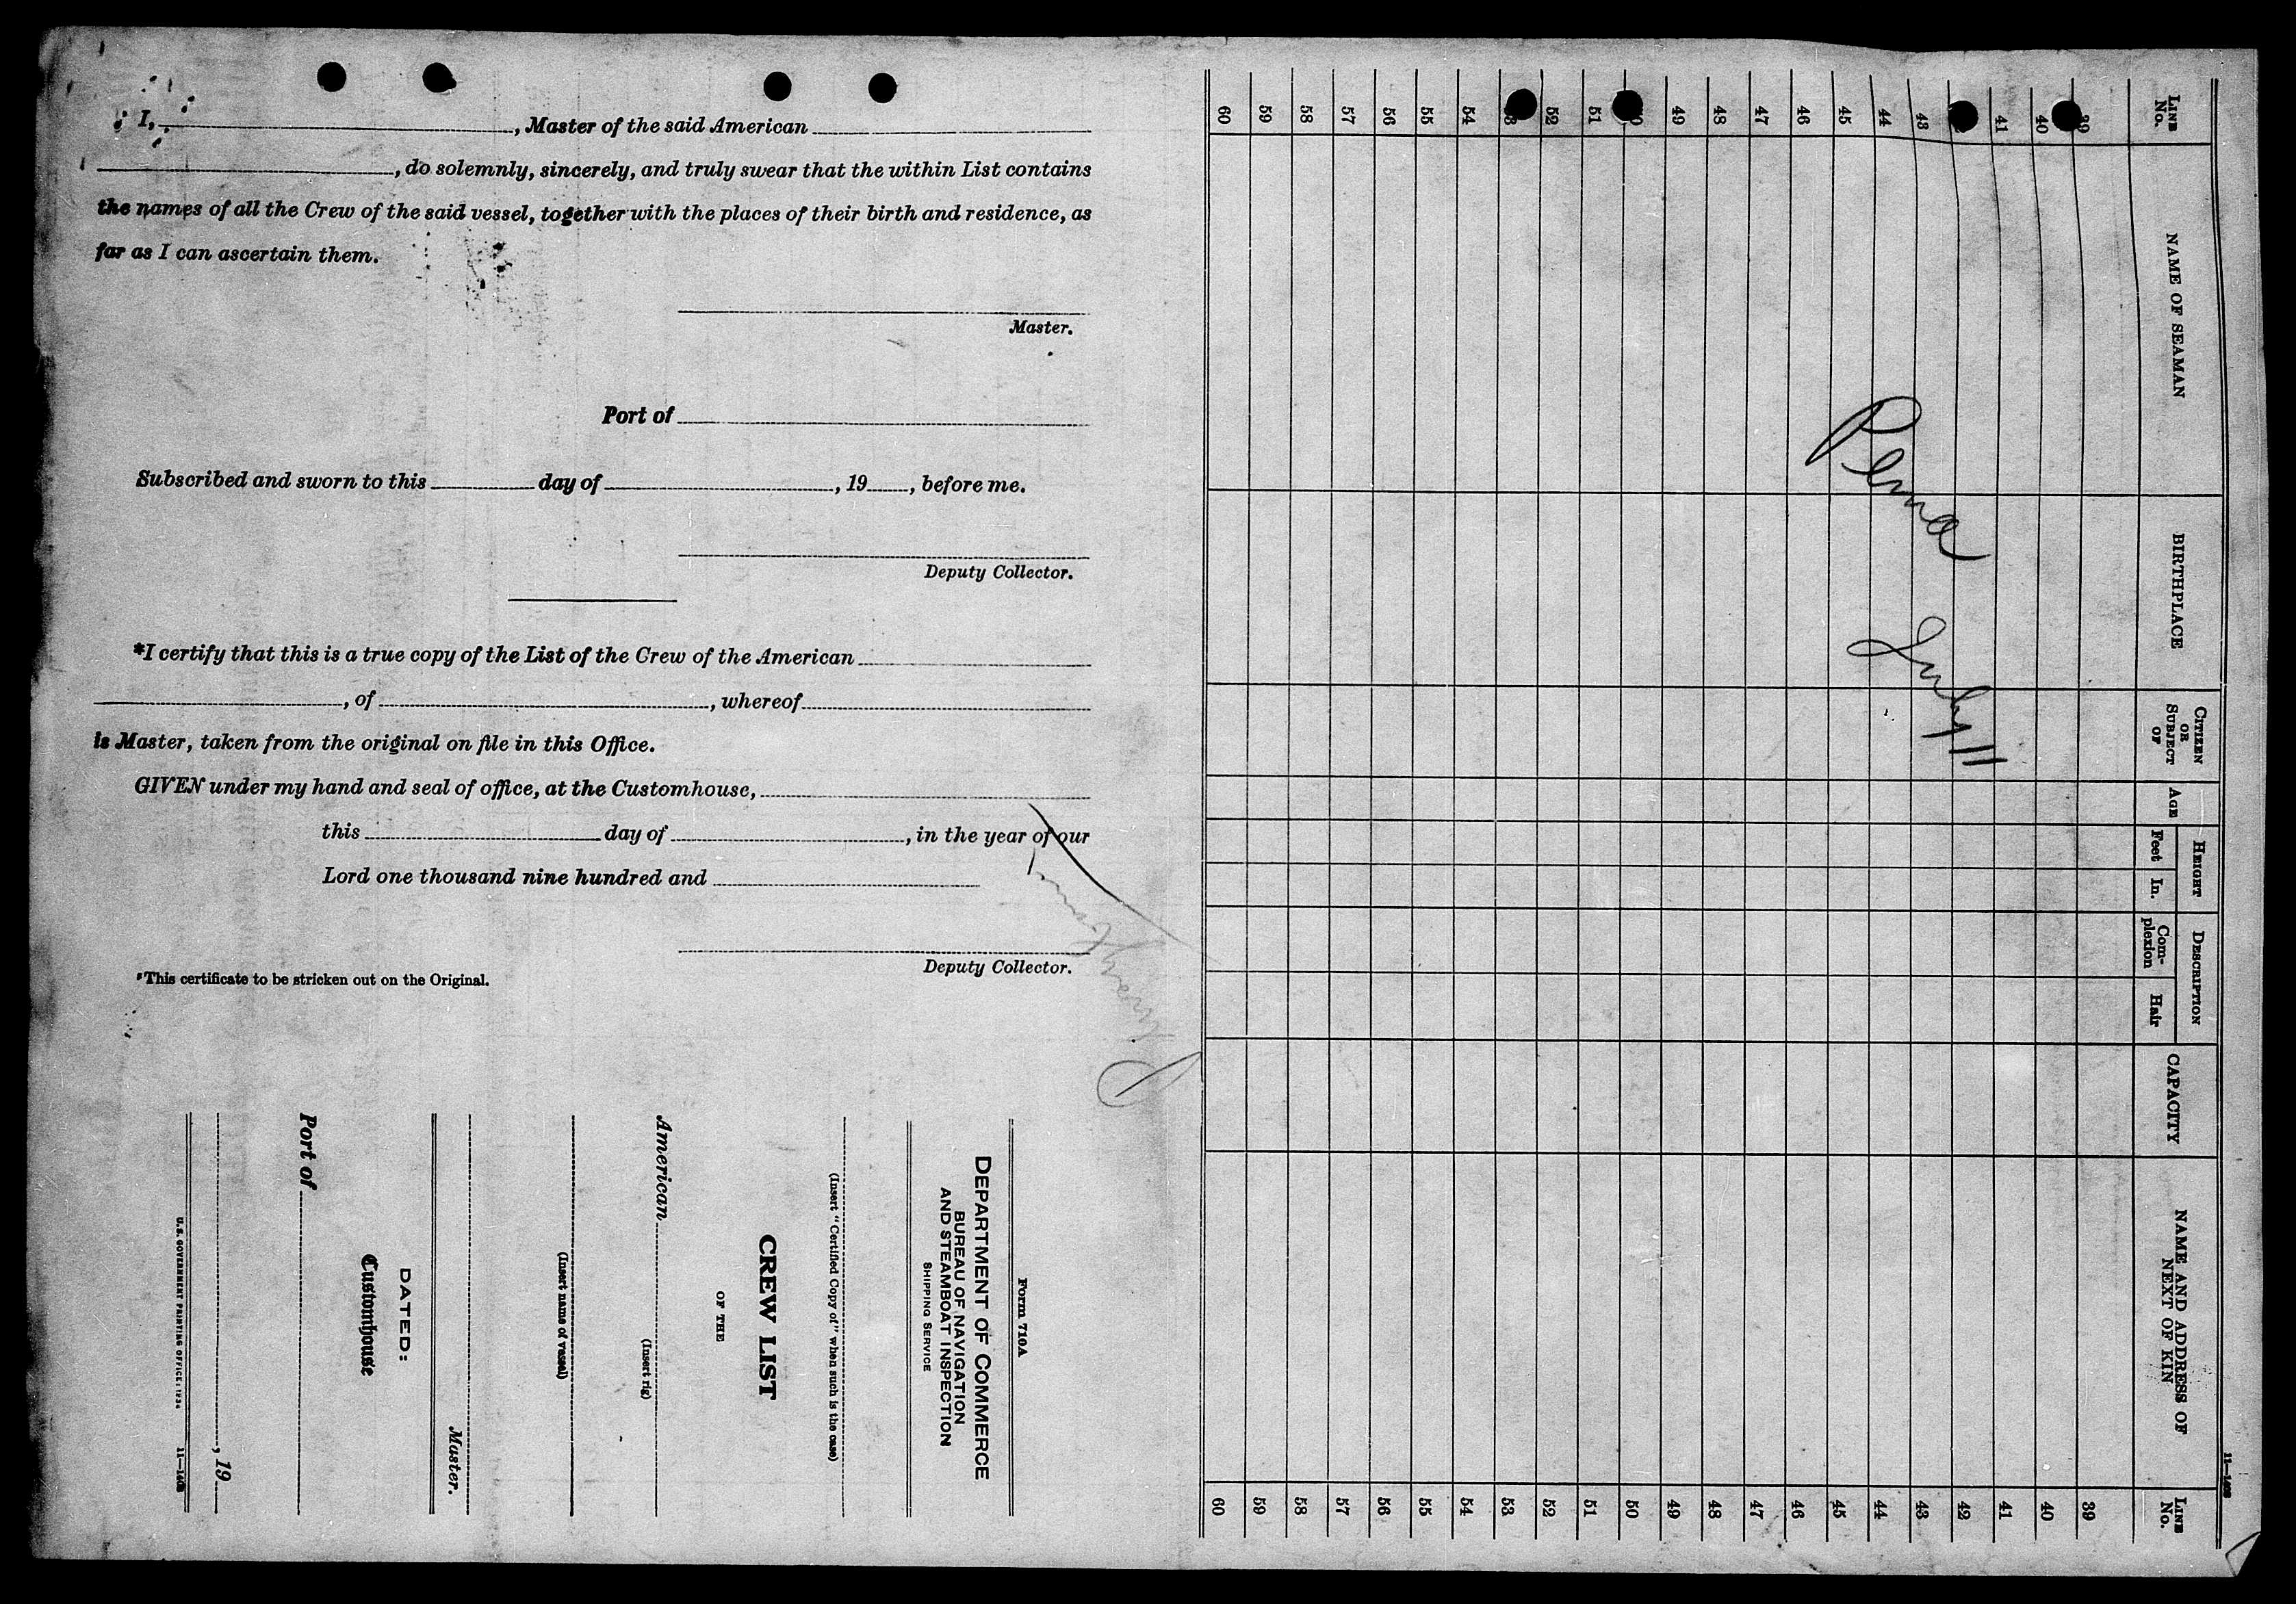 I, , Master of the said American
, do solemnly, sincerely, and truly swear that the within List contains
the names of all the Crew of the said vessel, together with the places of their birth and residence, as
far as I can ascertain them.
Master.
Port of
Subscribed and sworn to this day of , 19 , before me.
Deputy Collector.
*I certify that this is a true copy of the List of the Crew of the American
, of , whereof
is Master, taken from the original on file in this Office.
GIVEN under my hand and seal of office, at the Customhouse,
this day of , in the year of our
Lord one thousand nine hundred and
Deputy Collector.
*This certificate to be stricken out on the Original.
Form 710A
DEPARTMENT OF COMMERCE
BUREAU OF NAVIGATION
AND STEAMBOAT INSPECTION
SHIPPING SERVICE
(Insert "Certified Copy of" when such is the case)
CREW LIST
OF THE
American
(Insert rig)
(Insert name of vessel)
Master.
DATED:
Customhouse
Port of
, 19
U.S. GOVERNMENT PRINTING OFFICE: 1934 11—1408
11—1408
LINE No. NAME OF SEAMAN BIRTHPLACE CITIZEN OR SUBJECT OF AGE HEIGHT Feet In. DESCRIPTION Complexion Hair CAPACITY NAME AND ADDRESS OF NEXT OF KIN LINE No.
39 39
40 40
41 41
42
43 43
44 44
45 45
46 46
47 47
48 48
49 49
50
51 51
52 52
53
54 54
55 55
56 56
57 57
58 58
59 59
60 60
July 11